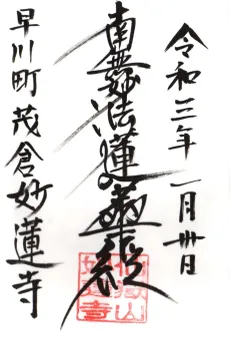 令和三年一月卅日
南無妙法蓮華経
早川町茂倉妙蓮寺